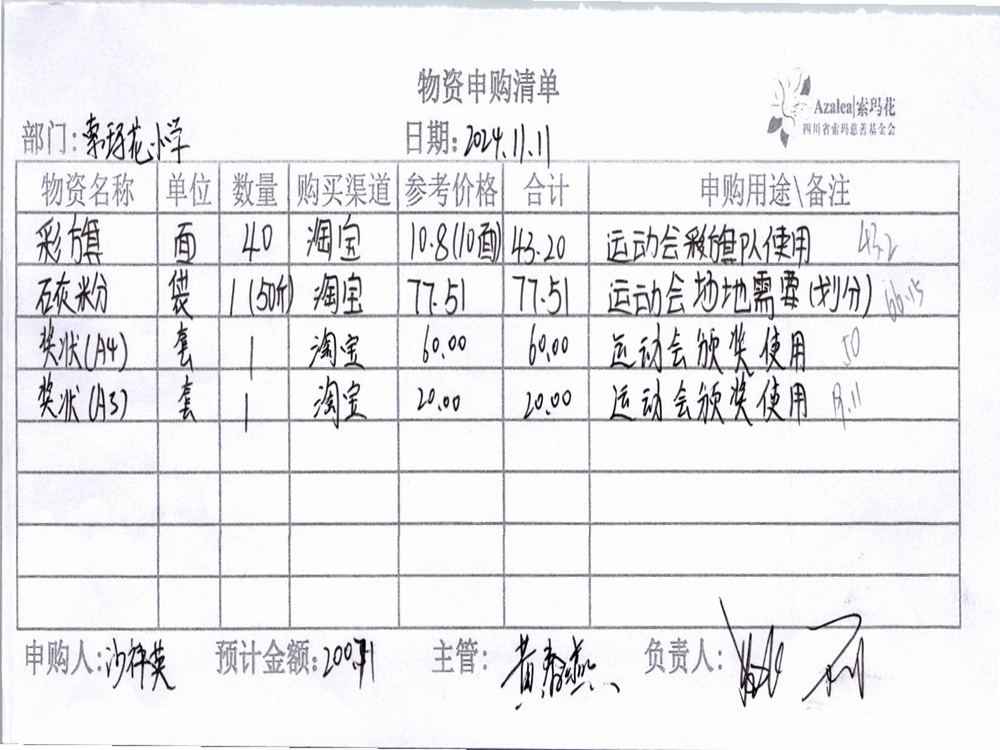 物资申购清单
Azalea|索玛花
四川省索玛慈善基金会
部门:索玛花小学 日期:2024.11.11
物资名称 单位 数量 购买渠道 参考价格 合计 申购用途\备注
彩旗 面 40 淘宝 10.8(10面) 43.20 运动会彩旗队使用 43.2
石灰粉 袋 1(50斤) 淘宝 77.51 77.51 运动会场地需要(划分) 66.15
奖状(A4) 套 1 淘宝 60.00 60.00 运动会颁奖使用 50
奖状(A3) 套 1 淘宝 20.00 20.00 运动会颁奖使用
申购人: 预计金额:200.71 主管:黄春燕 负责人: